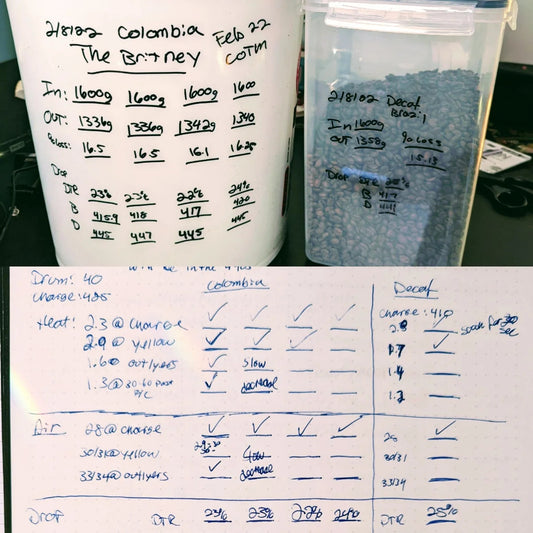 2/8/22 Colombia Feb 22
The Britney COTM
In: 1600g 1600g 1600g 1600
OUT: 1336g 1336g 1342g 1340
% loss: 16.5 16.5 16.1 16.25
Drop
DTR 23% 23% 22% 24%
B 415.9 418 417 420
D 445 447 445 445
2/8/22 Decaf
Brazil
In 1600g % loss
OUT 1358g 15.13
Drop DTR 25%
B 417
D 441
Drum: 40 Colombia Decaf
Charge: 425 Charge: 410
Heat: 2.3 @ charge 2.8 soak for sec
2.9 @ yellow 1.7
1.6 outlyers slow 1.4
1.3 @ 30-60 past decrease 1.2
F/C
Air 28 @ charge 28
30/31 @ yellow 30/31
33/34 @ outlyers decrease 33/34
Drop DTR 23% 23% 22% 24% DTR 25%